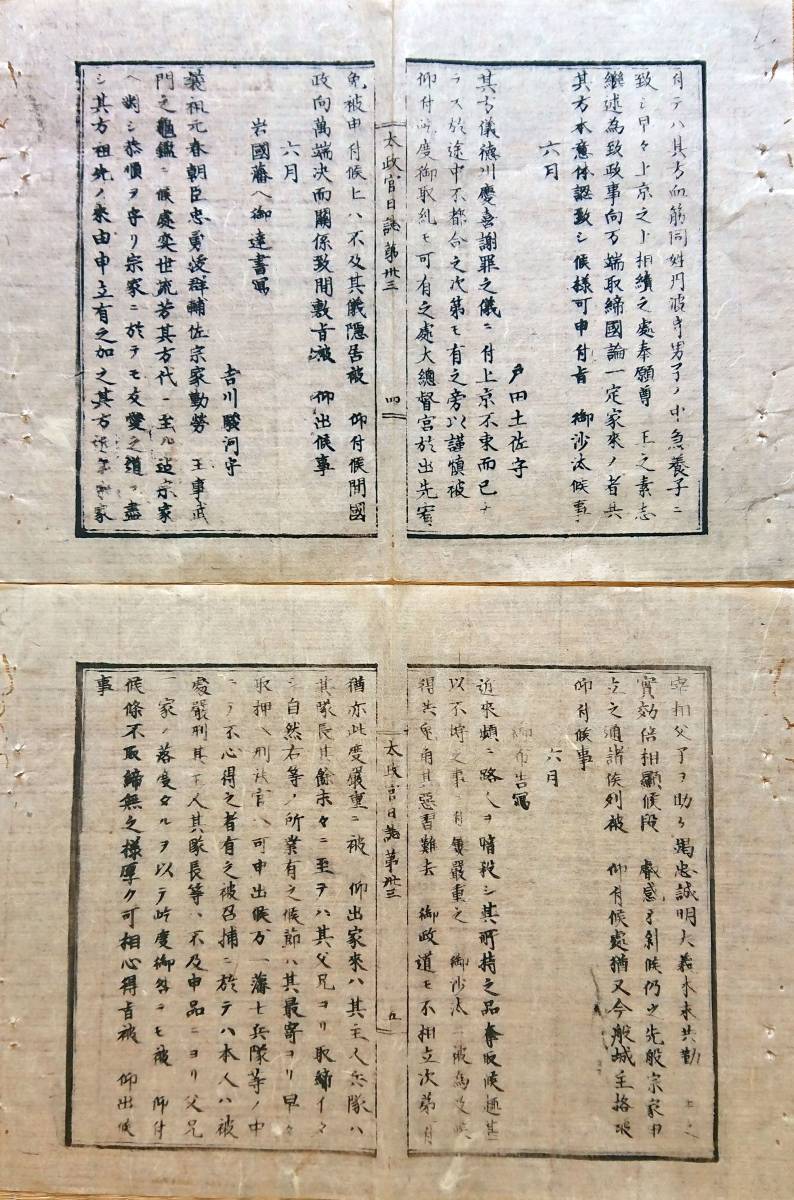 付テハ其方血筋同姓丹波守男子ノ中急養子ニ
致シ早々上京之上相續之處奉願尊 王之素志
繼述為致政事向万端取締國論一定家来ノ者共
其方本意体認致シ候様可申付旨 御沙汰候事
六月
戸田土佐守
其方儀德川慶喜謝罪之儀ニ付上京不束而已ナ
ラス於途中不都合之次第モ有之旁以謹慎被
仰付吟度御取糺モ可有之處大總督宮於出先寛
太政官日誌第卅三
四
免被申付候上ハ不及其儀隠居被 仰付候間國
政向萬端決而關係致間敷旨被 仰出候事
六月
岩國藩ヘ御達書寫
吉川駿河守
義祖元春朝臣忠勇抜群輔佐宗家勤勞 王事武
門之龜鑑ニ候處奕世流若其方代ニ至ル迠宗家
ヘ對シ恭順ヲ守リ宗家ニ於テモ友愛之道ヲ盡
シ其方祖先ノ来由申立有之加之其方近年宗家
宰相父子ヲ助ケ竭忠誠明大義本末共勤 王之
實効倍相顯候段 叡感不斜候仍之先般宗家申
立之通諸侯列被 仰付候處猶又今般城主格被
仰付候事
六月
御布告寫
近来頻ニ路人ヲ暗殺シ其所持之品奪取候趣甚
以不埒之事ニ付嚴重之 御沙汰ニ被為及候
得共兎角其惡習難去 御政道モ不相立次第ニ付
太政官日誌第卅三
五
猶亦此度嚴重ニ被 仰出家来ハ其主人兵隊ハ
其隊長其餘末々ニ至ヲハ其父兄ヨリ取締イタ
シ自然右等ノ所業有之候節ハ其最寄ヨリ早々
取押ヘ刑法官ヘ可申出候万一藩士兵隊等ノ中
ニテ不心得之者有之被召捕ニ於テハ本人ハ被
處嚴刑其主人其隊長等ハ不及申品ニヨリ父兄
一家ノ落度タルヲ以テ吟度御咎ニモ被 仰付
候條不取締無之様厚ク可相心得旨被 仰出候
事